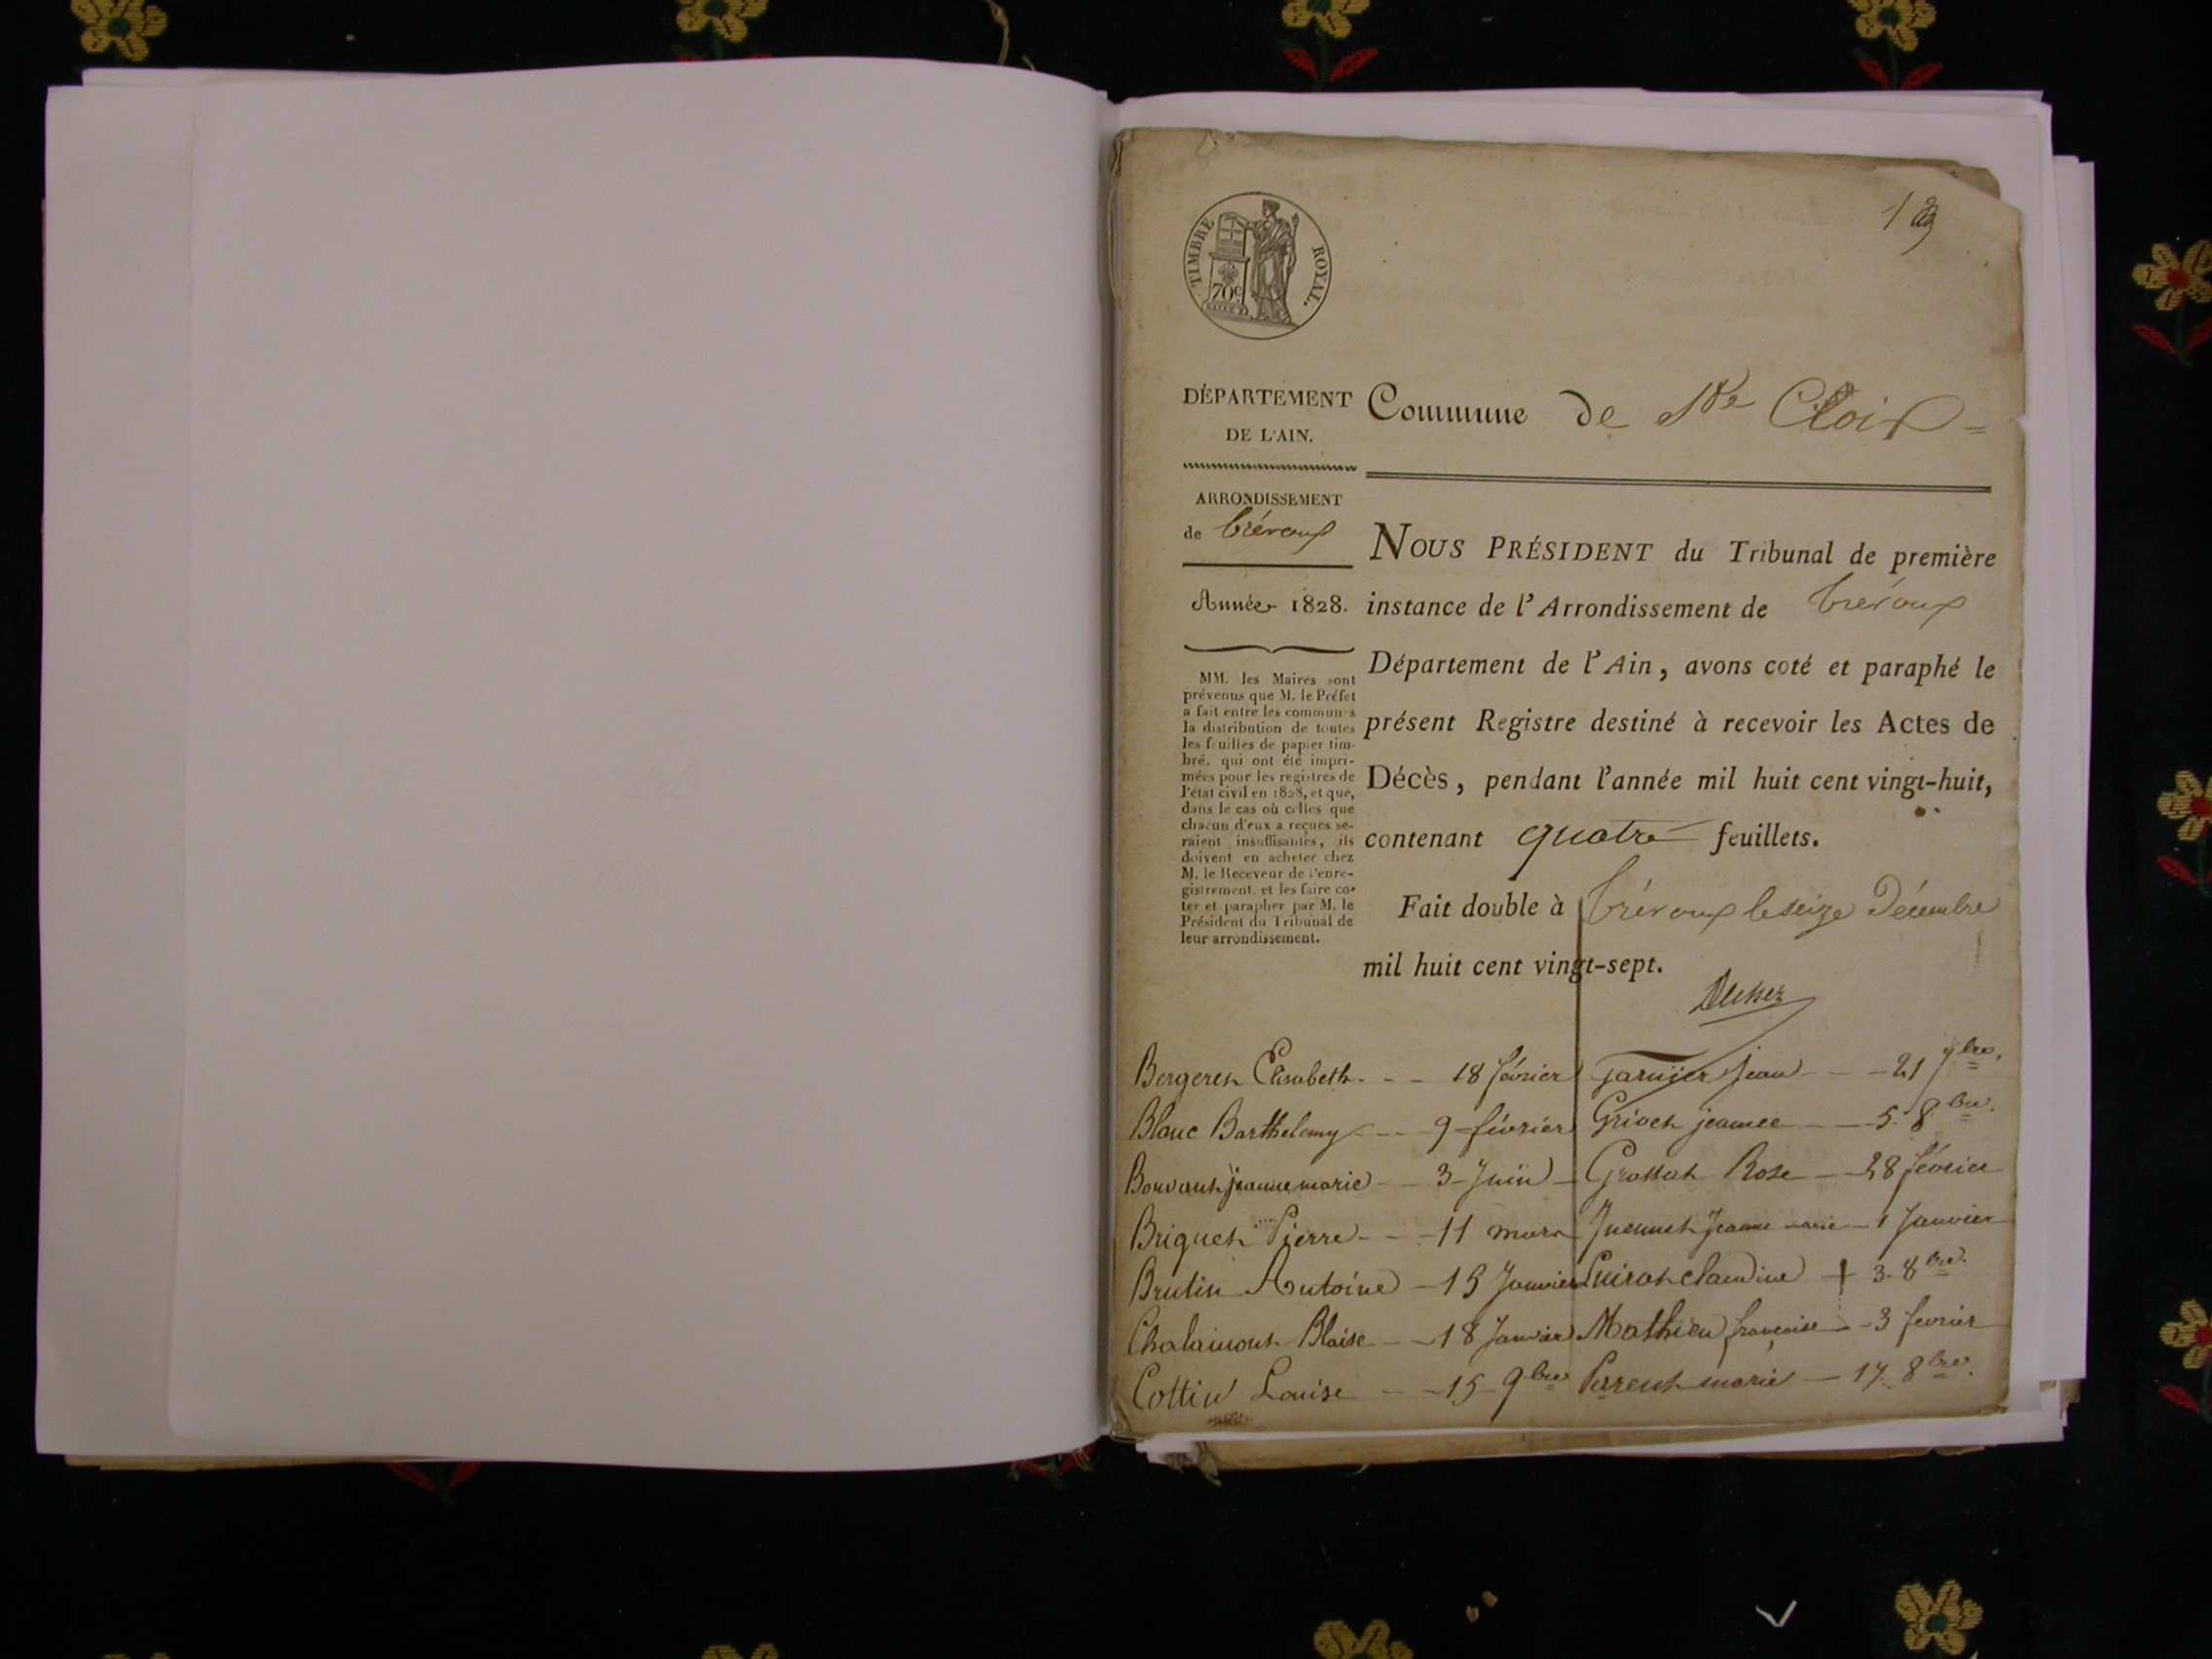 TIMBRE ROYAL.
70c
DÉPARTEMENT
DE L'AIN.
Commune de Ste Croix
ARRONDISSEMENT
de Trévoux
Année 1828.
MM. les Maires sont
prévenus que M. le Préfet
a fait entre les communes
la distribution de toutes
les feuilles de papier tim-
bré, qui ont été impri-
mées pour les registres de
l'état civil en 1828, et que,
dans le cas où celles que
chacun d'eux a reçues se-
raient insuffisantes, ils
doivent en acheter chez
M. le Receveur de l'enre-
gistrement, et les faire co-
ter et parapher par M. le
Président du Tribunal de
leur arrondissement.
NOUS PRÉSIDENT du Tribunal de première
instance de l'Arrondissement de Trévoux
Département de l'Ain, avons coté et paraphé le
présent Registre destiné à recevoir les Actes de
Décès, pendant l'année mil huit cent vingt-huit,
contenant quatre feuillets.
Fait double à Trévoux le seize Décembre
mil huit cent vingt-sept.
Bergeret Elisabeth - - - 18 février
Blanc Barthelemy - - - 9 février
Bouvant jeanne marie - - 3 Juin
Briquet Pierre - - - 11 mars
Brutin Antoine - 15 Janvier
Chalamont Blaise - - 18 Janvier
Cottin Louise - - 15 9bre
Garnier Jean - - - 21 9bre.
Grivet jeanne - - 5. 8bre.
Grossat Rose - 28 février
Juennet Jeanne marie - 1 Janvier
claudine + 3. 8bre.
Mathieu françoise - - 3 fevrier
Parent marie - 17. 8bre.